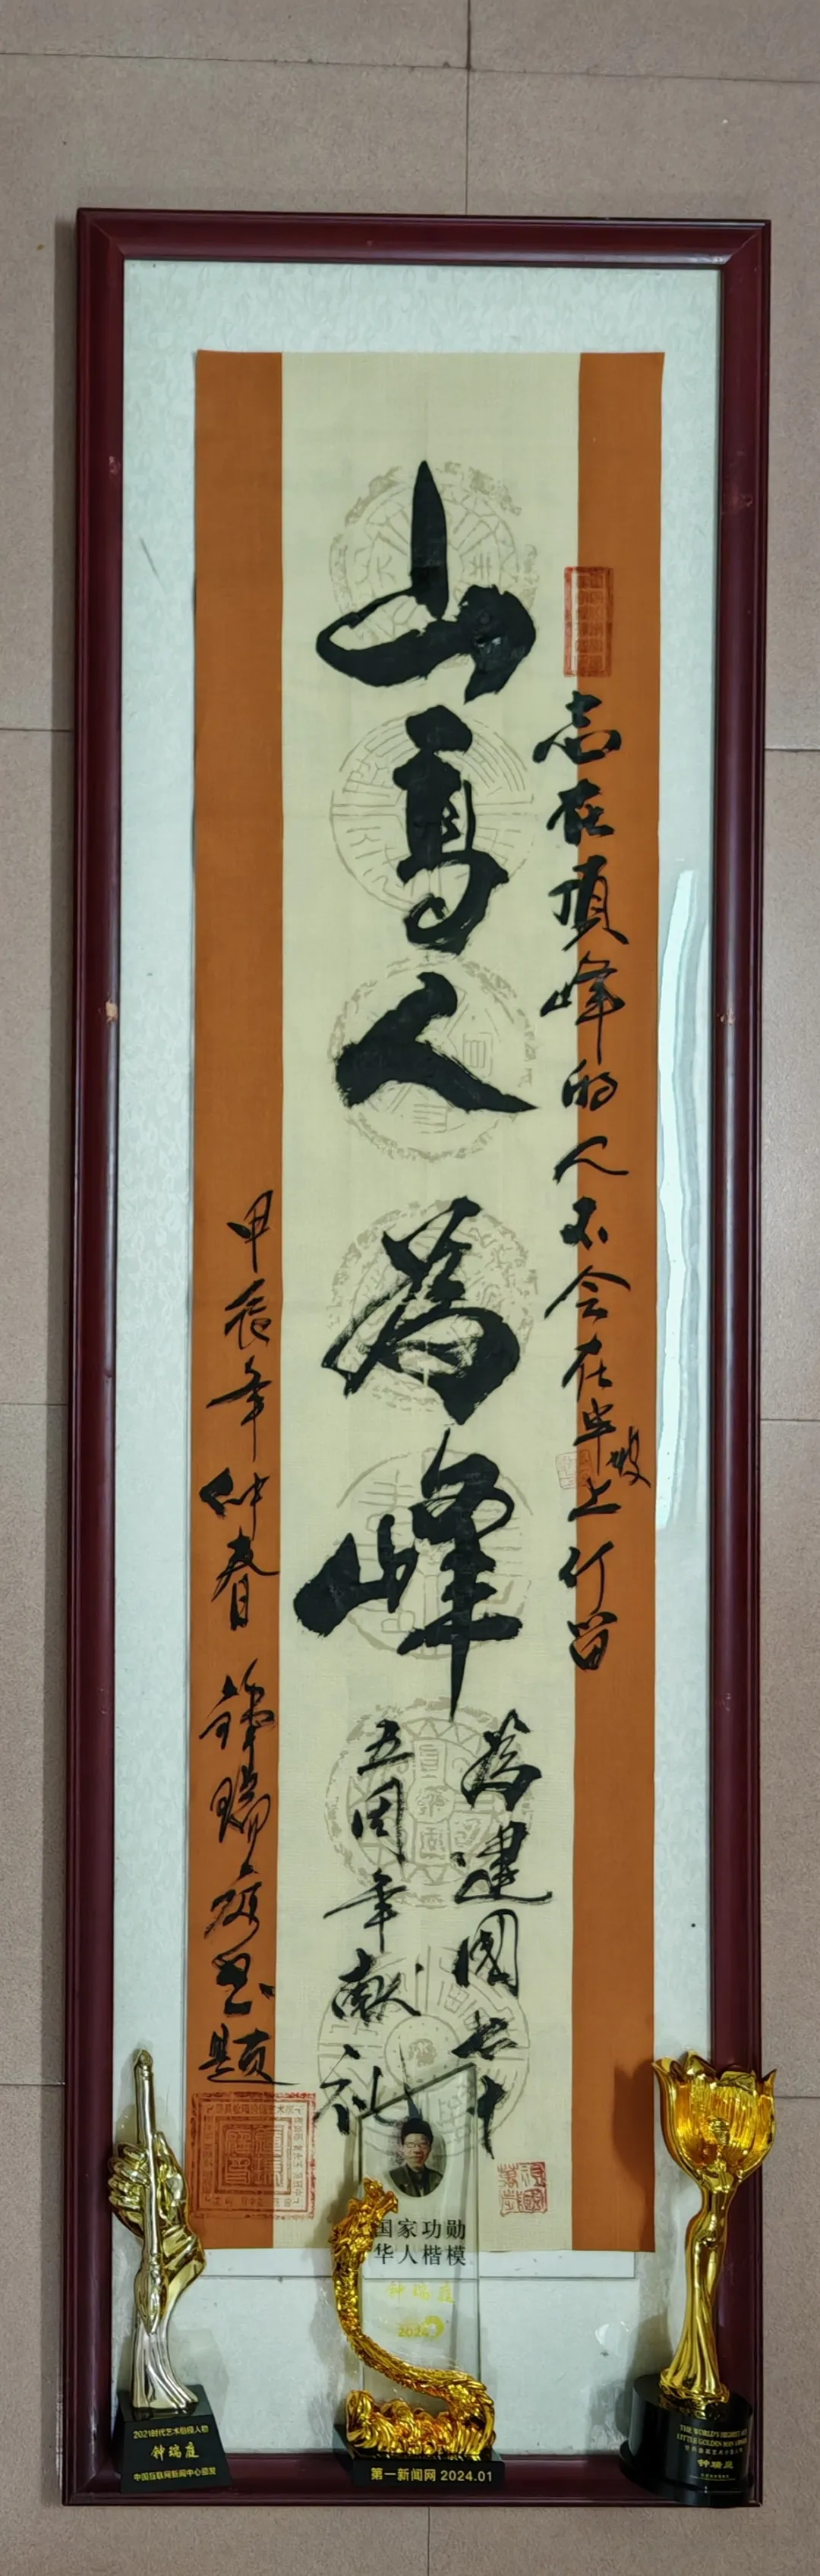 志在顶峰的人不会在半坡上停留
山高人为峰
为建國七十
五周年献礼
甲辰年仲春 钟瑞庭书题
国家功勋
华人楷模
钟瑞庭
2024
第一新闻网 2024.01
2021时代艺术榜样人物
钟瑞庭
中国互联网新闻中心颁发
THE WORLD'S HIGHEST ART
LITTLE GOLDEN MAN AWARD
钟瑞庭